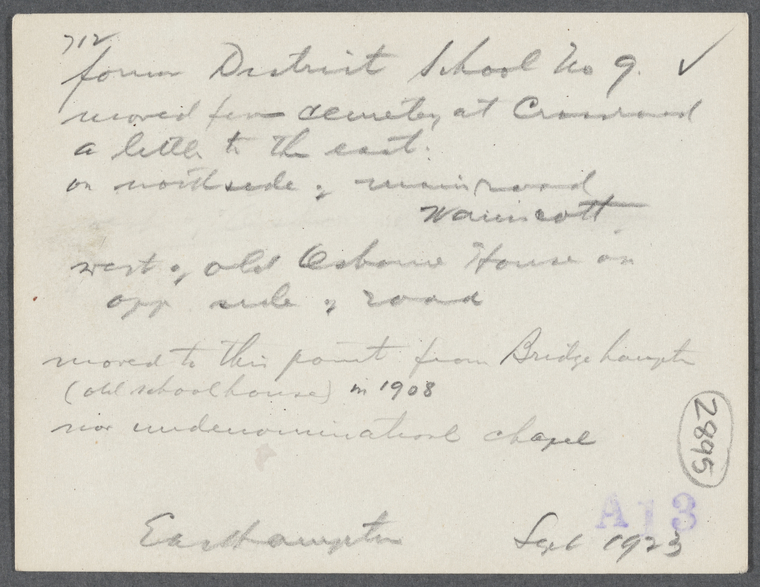 712
former District School No 9. ✓
moved from cemetery at Crossroad
a little to the east.
on north side of main road
Wainscott
west of old Osborne House on
opp side of road
moved to this point from Bridgehampton
(old schoolhouse) in 1908
now undenominational chapel
2895
A13
Easthampton Sept 1923